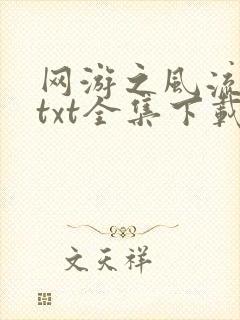 网游之风流
txt全集下载
文天祥